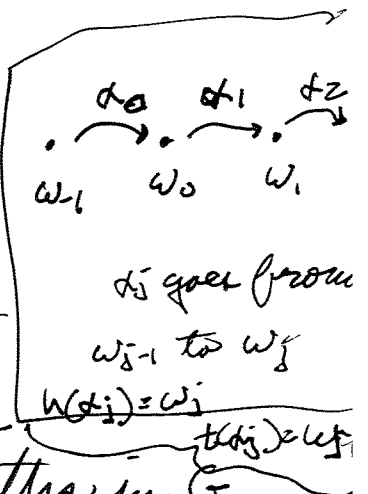 α0 α1 α2
ω-1 ω0 ω1
αj goes from
ωj-1 to ωj
h(αj) = ωj
t(αj) = ωj-1